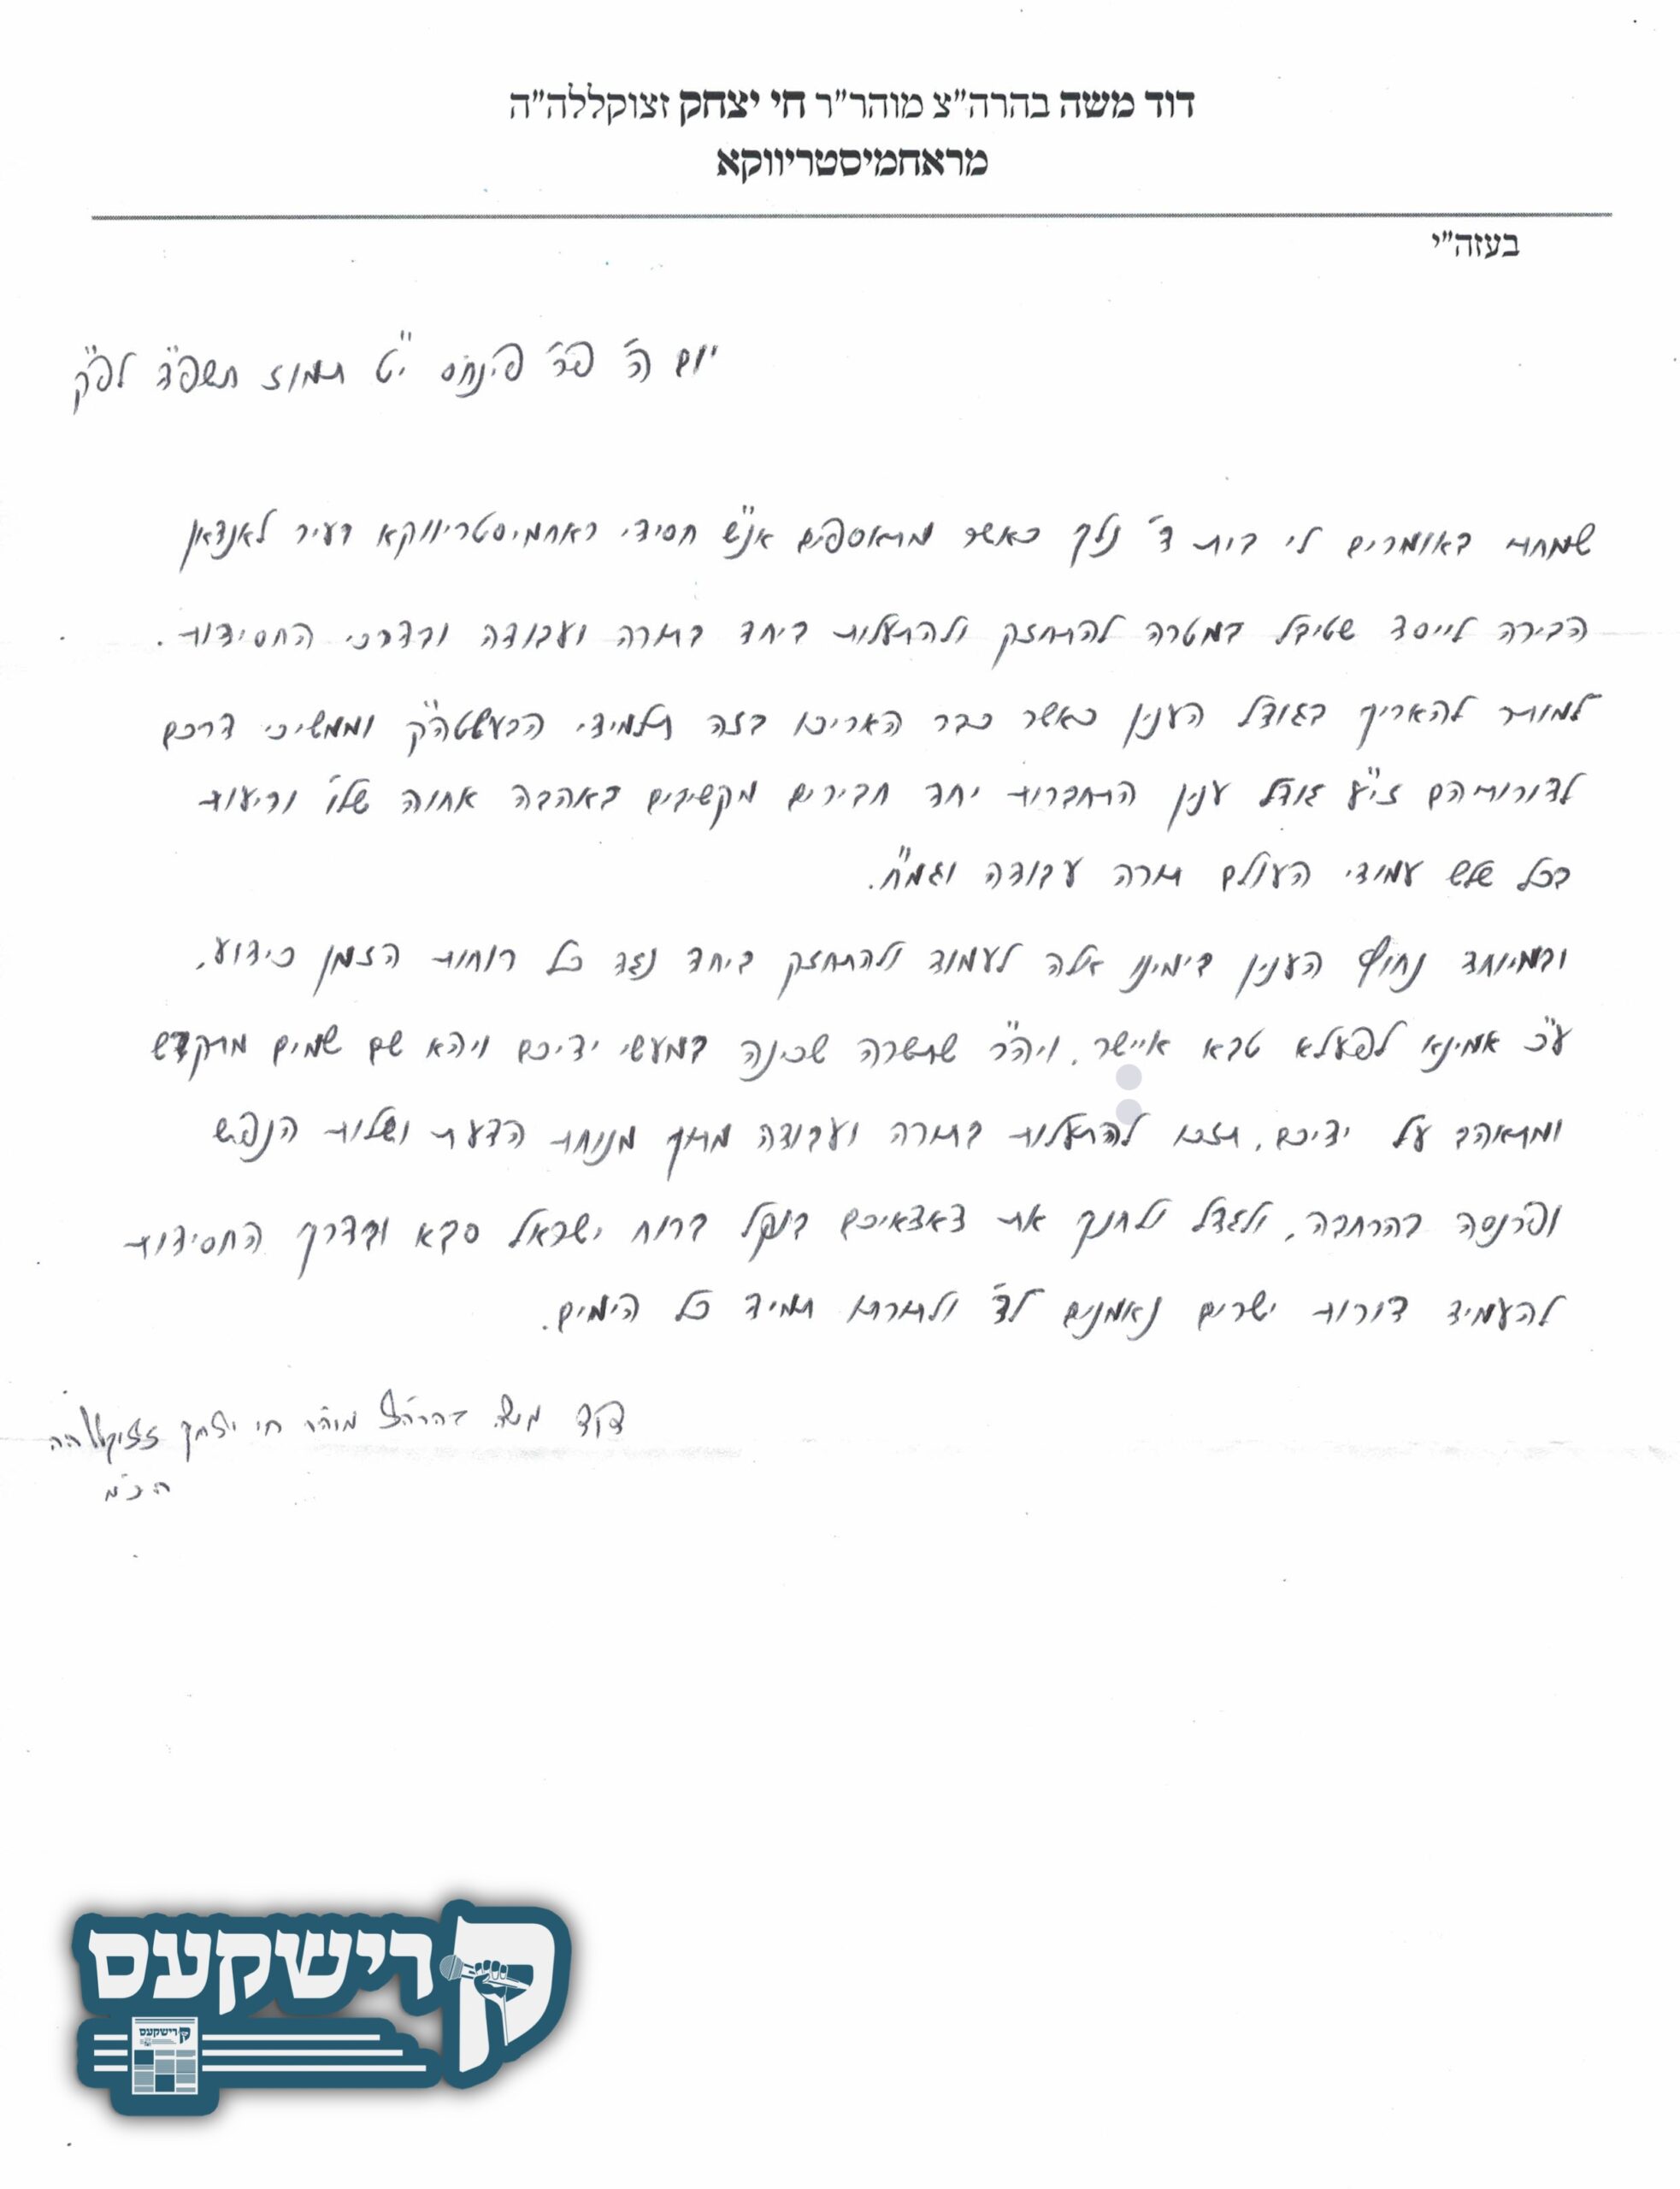 דוד משה בהרה"צ מוהר"ר חי יצחק זצוקללה"ה
מראחמיסטריווקא
בעזה"י
יום ה' פר' פינחס י"ט תמוז תשפ"ה לפ"ק
שמחתי באומרים לי בית ד' נלך כאשר מתאספים אנ"ש חסידי ראחמיסטריווקא דעיר לאנדאן
הבירה לייסד שטיבל במטרה להתחזק ולהתעלות ביחד בתורה ועבודה ובדרכי החסידות.
למותר להאריך בגודל הענין כאשר כבר האריכו בזה תלמידי הבעשטה"ק וממשיכי דרכם
לדורותיהם זי"ע גודל ענין התחברות יחד חבירים מקשיבים באהבה אחוה שלו' וריעות
בכל שלש עמודי העולם תורה עבודה וגמ"ח.
ובמיוחד נחוץ הענין בימינו אלה לעמוד ולהתחזק ביחד נגד כל רוחות הזמן כידוע,
ע"כ אמינא לפעלא טבא איישר. ויה"ר שתשרה שכינה במעשי ידיכם ויהא שם שמים מתקדש
ומתאהב על ידיכם, תזכו להתעלות בתורה ועבודה מתוך מנוחת הדעת ושלות הנפש
ופרנסה בהרחבה, ולגדל ולחנך את צאצאיכם בנקל ברוח ישראל סבא ובדרך החסידות
להעמיד דורות ישרים נאמנים לד' ולתורתו תמיד כל הימים.
דוד משה בהרה"צ מוהר"ר חי יצחק זצוקללה"ה
קרישקעס
קרישקעס